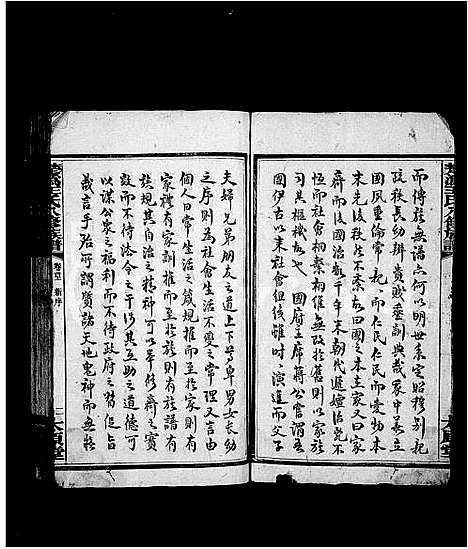 而傳疑無譜亦何以明世系定昭穆別親
疏秩長幼辨貴賤垂訓典哉衷中養三
萬重倫常親親而仁民仁民而愛物本
末先後秩然不紊曰國之本在家又曰家
齊而後國治數千年來朝代遞嬗治亂
靡常社會相繫相維無改於舊則以家
司其樞機故也 國府主席蔣公嘗謂吾
國伊古以來社會組後雖時演進而父子
夫婦兄弟朋友之道上下尊卑男女長幼
之序則為社會生活不變之常理又言由
個人日常生活之箴規推而至於家則有
家禮有家訓推而至於族則有族譜有
族規其自治之精神可以舉修齊之實
效而不待法令之干涉其互助之道德可
以謀公眾之福利而不待政府之督促
哉言乎殆所謂質諸天地鬼神而無疑
楚溈王氏八修族譜
卷首 新序
二